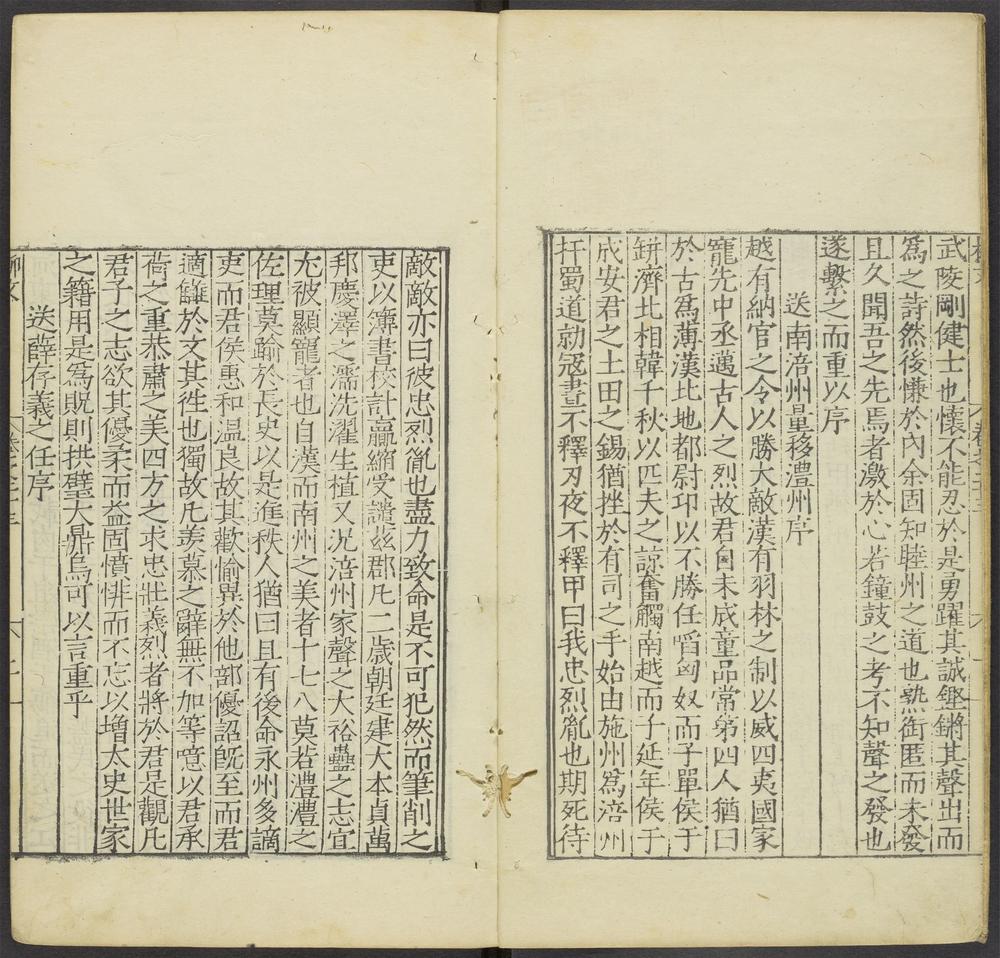 武陵剛健士也懷不能忍於是勇躍其誠鏗鏘其聲出而
為之詩然後慊於內余固知睦州之道也熟銜匿而未發
且久聞吾之先焉者激於心若鐘鼓之考不知聲之發也
遂繫之而重以序
送南涪州量移澧州序
越有納官之令以勝大敵漢有羽林之制以威四夷國家
寵先中丞邁古人之烈故君自未成童品常第四人猶曰
於古為薄漢北地都尉卬以不勝任䧟匈奴而子單侯于
缾濟北相韓千秋以匹夫之諒奮觸南越而子延年侯于
成安君之土田之錫猶挫於有司之手始由施州為涪州
扞蜀道勍寇晝不釋刃夜不釋甲曰我忠烈胤也期死待
敵敵亦曰彼忠烈胤也盡力致命是不可犯然而筆削之
吏以簿書校計贏縮受譴茲郡凡二歲朝廷建大本貞萬
邦慶澤之濡洗濯生植又況涪州家聲之大裕蠱之志宜
尤被顯寵者也自漢而南州之美者十七八莫若澧澧之
佐理莫踰於長史以是進秩人猶曰且有後命永州多謫
吏而君侯惠和溫良故其歡愉異於他部優詔旣至而君
適讎於文其徃也獨故凡羨慕之辭無不加等噫以君承
荷之重恭肅之美四方之求忠壯義烈者將於君是觀凡
君子之志欲其優柔而益固憤悱而不忘以增太史世家
之籍用是為貺則拱璧大鼎烏可以言重乎
送薛存義之任序